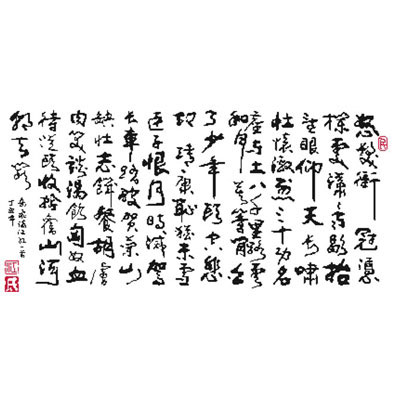 怒髮衝冠憑
欄處瀟瀟雨歇抬
望眼仰天長嘯
壯懷激烈三十功名
塵與土八千里路雲
和月莫等閒白
了少年頭空悲
切靖康恥猶未雪
臣子恨何時滅駕
長車踏破賀蘭山
缺壯志飢餐胡虜
肉笑談渴飲匈奴血
待從頭收拾舊山河
朝天闕
岳飛滿江紅一首
丁亥年